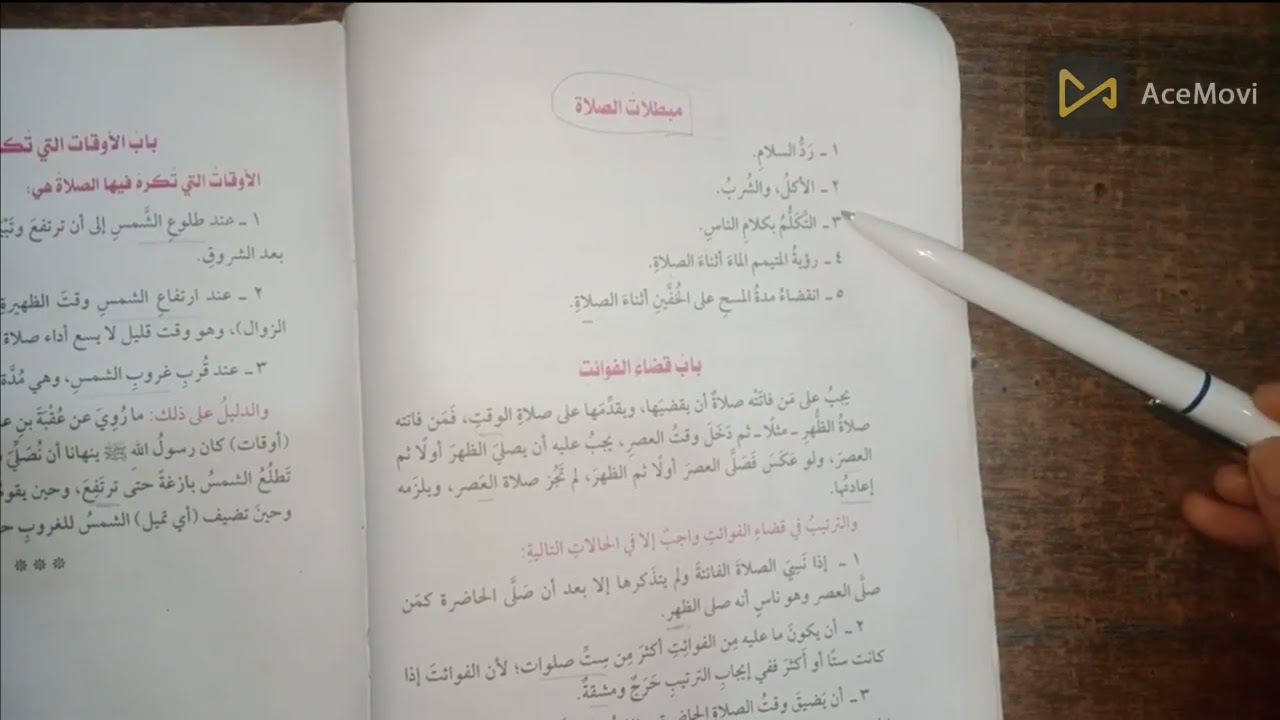 AceMovi
مبطلات الصلاة
١ ـ رَدُّ السلامِ.
٢ ـ الأكلُ، والشُربُ.
٣ ـ التَّكَلُّمُ بكلامِ الناسِ.
٤ ـ رؤيةُ المتيمم الماءَ أثناءَ الصلاةِ.
٥ ـ انقضاءُ مدةُ المسحِ على الخُفَّينِ أثناءَ الصلاةِ.
بابُ قضاء الفوائت
يجبُ على مَن فاتَتْه صلاةٌ أن يقضيَها، ويقدِّمَها على صلاةِ الوقتِ، فَمَن فاتته
صلاةُ الظُّهرِ ـ مثلًا ـ ثم دَخَلَ وقتُ العصرِ، يجبُ عليه أن يصليَ الظهرَ أولًا ثم
العصرَ، ولو عَكَسَ فَصَلَّى العصرَ أولًا ثم الظهرَ، لم تَجُزْ صلاة العَصر، ويلزمه
إعادتُها.
والترتيبُ في قضاءِ الفوائتِ واجبٌ إلا في الحالاتِ التاليةِ:
١ ـ إذا نَسِيَ الصلاةَ الفائتةَ ولم يتذكرها إلا بعد أن صَلَّى الحاضرة كمَن
صلَّى العصر وهو ناسٍ أنه صلى الظهرِ.
٢ ـ أن يكونَ ما عليه مِن الفوائِتِ أكثرَ مِن سِتِّ صلوات؛ لأن الفوائتَ إذا
كانت ستًا أو أكثرَ ففي إيجابِ الترتيبِ حَرَجٌ ومشقةٌ.
٣ ـ أن يَضيقَ وقتُ الصلاةِ الحاضرةِ
بابُ الأوقات التي تُكر
الأوقاتُ التي تُكرهُ فيها الصلاةُ هي:
١ ـ عند طلوعِ الشَّمسِ إلى أن ترتفعَ
بعد الشروقِ.
٢ ـ عند ارتفاعِ الشمسِ وقتَ الظهيرةِ
الزوال)، وهو وقت قليل لا يسع أداء صلاة
٣ ـ عند قُربِ غروبِ الشمسِ، وهي مُدَّة
والدليلُ على ذلك: ما رُويَ عن عُقْبَةَ بنِ
(أوقات) كان رسولُ اللهِ ﷺ ينهانا أن نُصَلِّيَ
تَطلُعُ الشمسُ بازغةً حتى ترتَفِعَ، وحين
وحينَ تضيف (أي تميل) الشمسُ للغروبِ
***